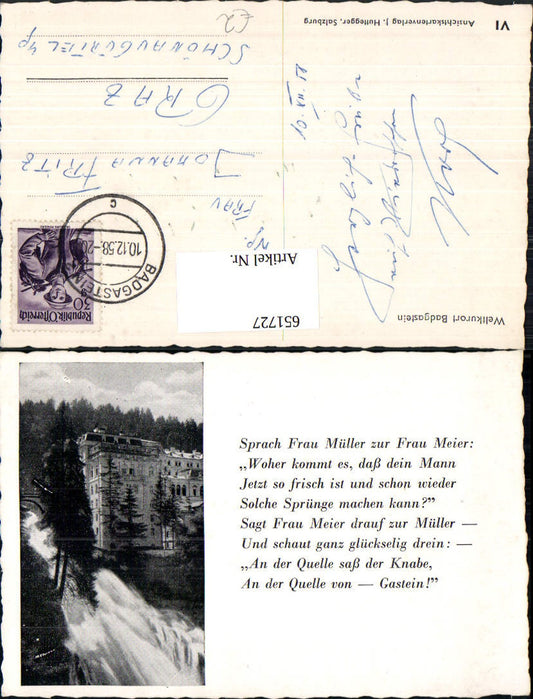 VI
Ansichtskartenverlag J. Huttegger, Salzburg
Weltkurort Badgastein
10. XII. 58
£2
FRAU
JOHANNA FRITZ
GRAZ
SCHÖNAUGÜRTEL 4p
BADGASTEIN
10.12.58-20
c
50
Republik Österreich
Artikel Nr.
651727
Sprach Frau Müller zur Frau Meier:
„Woher kommt es, daß dein Mann
Jetzt so frisch ist und schon wieder
Solche Sprünge machen kann?”
Sagt Frau Meier drauf zur Müller —
Und schaut ganz glückselig drein: —
„An der Quelle saß der Knabe,
An der Quelle von — Gastein!”